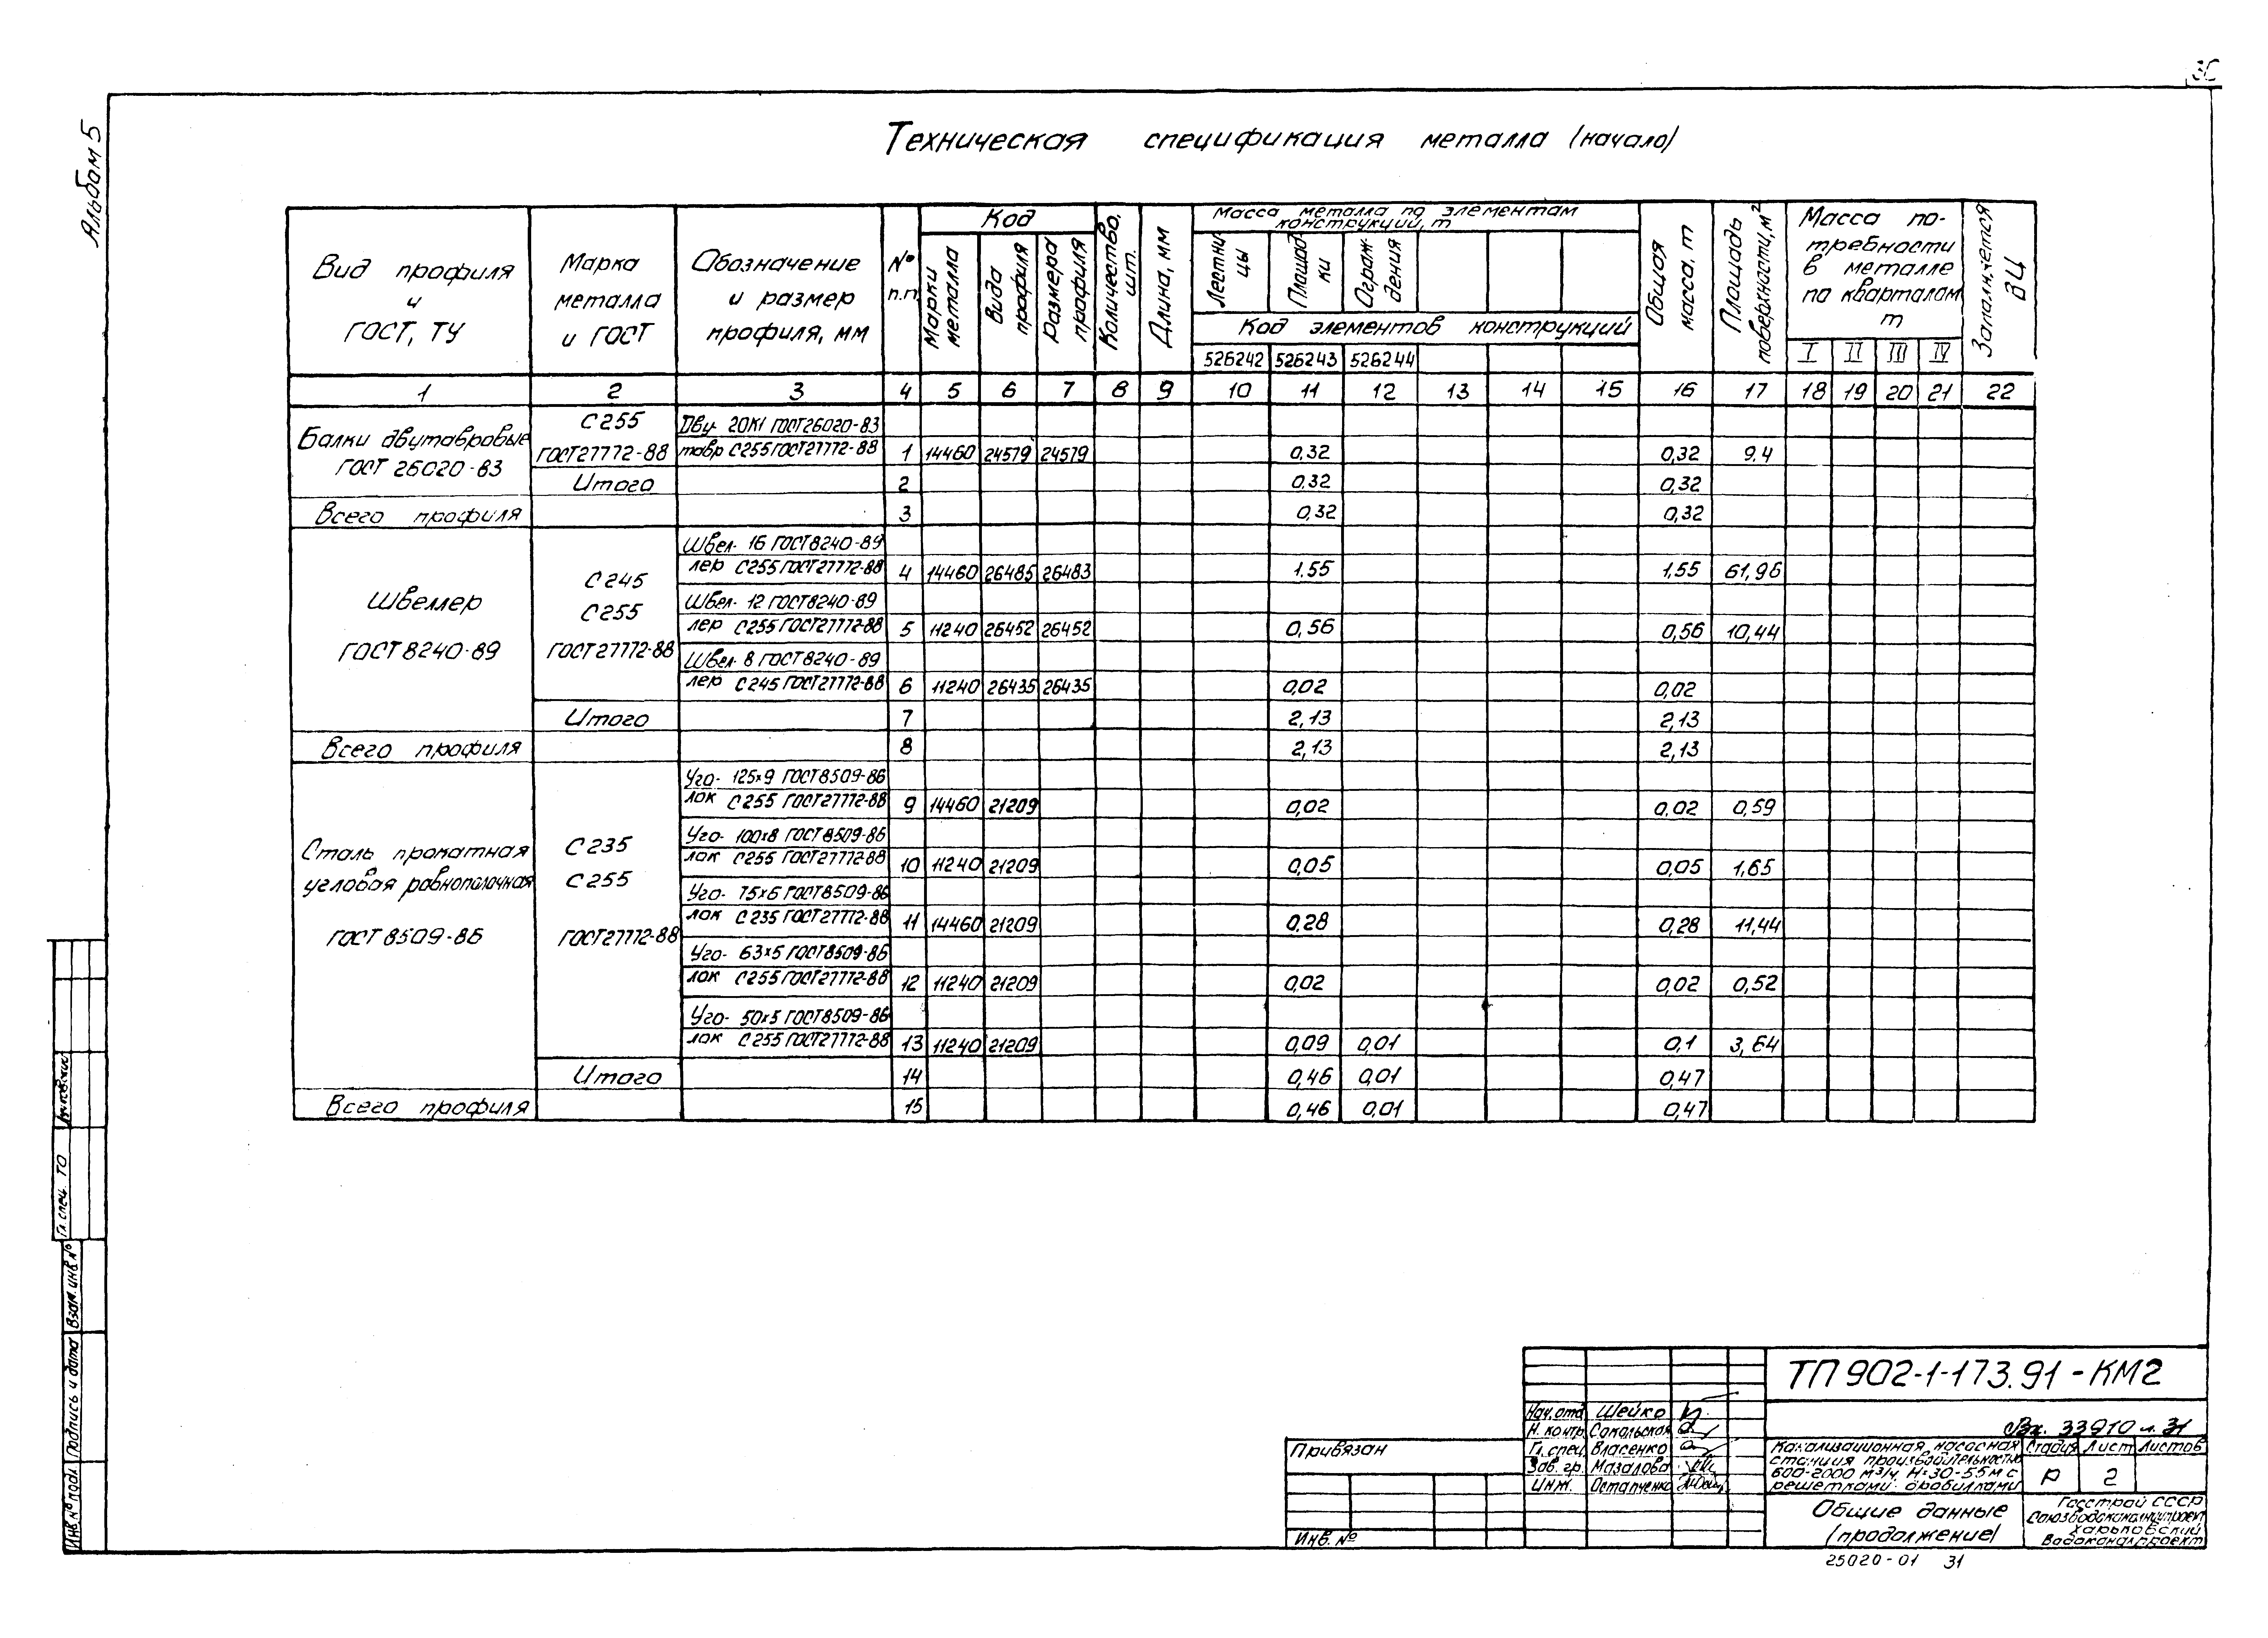 Альбом 5
Техническая спецификация металла (начало)
Вид профиля и ГОСТ, ТУ
Марка металла и ГОСТ
Обозначение и размер профиля, мм
№ п.п.
Код
Марки металла
Вида профиля
Размера профиля
Количество, шт.
Длина, мм
Масса металла по элементам конструкций, т
Лестницы
Площадки
Ограждения
Код элементов конструкций
526242 526243 526244
Общая масса, т
Площадь поверхности, м²
Масса потребности в металле по кварталам т
I II III IV
Заполняется ВЦ
1 2 3 4 5 6 7 8 9 10 11 12 13 14 15 16 17 18 19 20 21 22
Балки двутавровые
ГОСТ 26020-83
С255
ГОСТ27772-88
Дву- 20К1 ГОСТ26020-83
тавр С255 ГОСТ27772-88 1 14460 24579 24579 0,32 0,32 9.4
Итого 2 0,32 0,32
Всего профиля 3 0,32 0,32
Швеллер
ГОСТ 8240-89
С245
С255
ГОСТ27772-88
Швел- 16 ГОСТ8240-89
лер С255 ГОСТ27772-88 4 14460 26485 26483 1.55 1,55 61,96
Швел- 12 ГОСТ8240-89
лер С255 ГОСТ27772-88 5 11240 26452 26452 0,56 0,56 10,44
Швел- 8 ГОСТ8240-89
лер С245 ГОСТ27772-88 6 11240 26435 26435 0,02 0,02
Итого 7 2,13 2,13
Всего профиля 8 2,13 2,13
Сталь прокатная
угловая равнополочная
ГОСТ 8509-86
С235
С255
ГОСТ27772-88
Уго- 125х9 ГОСТ8509-86
лок С255 ГОСТ27772-88 9 14460 21209 0,02 0,02 0,59
Уго- 100х8 ГОСТ8509-86
лок С255 ГОСТ27772-88 10 11240 21209 0,05 0,05 1,65
Уго- 75х6 ГОСТ8509-86
лок С235 ГОСТ27772-88 11 14460 21209 0,28 0,28 11,44
Уго- 63х5 ГОСТ8509-86
лок С255 ГОСТ27772-88 12 11240 21209 0,02 0,02 0,52
Уго- 50х5 ГОСТ8509-86
лок С255 ГОСТ27772-88 13 11240 21209 0,09 0,01 0,1 3,64
Итого 14 0,46 0,01 0,47
Всего профиля 15 0,46 0,01 0,47
Гл. спец. ТО
Взам. инв. №
Подпись и дата
Инв. № подл.
ТП 902-1-173.91 - КМ2
Вх. 33910 л. 31
Нач. отд Шейко
Н. контр. Сокольская
Гл. спец. Власенко
Зав. гр. Мазалова
Инж. Остапченко
Привязан
Инв. №
Канализационная насосная
станция производительностью
600-2000 м³/ч, Н=30-55м с
решетками-дробилками
Стадия Лист Листов
Р 2
Общие данные
(продолжение)
Госстрой СССР
Союзводоканалниипроект
Харьковский
Водоканалпроект
25020-01 31